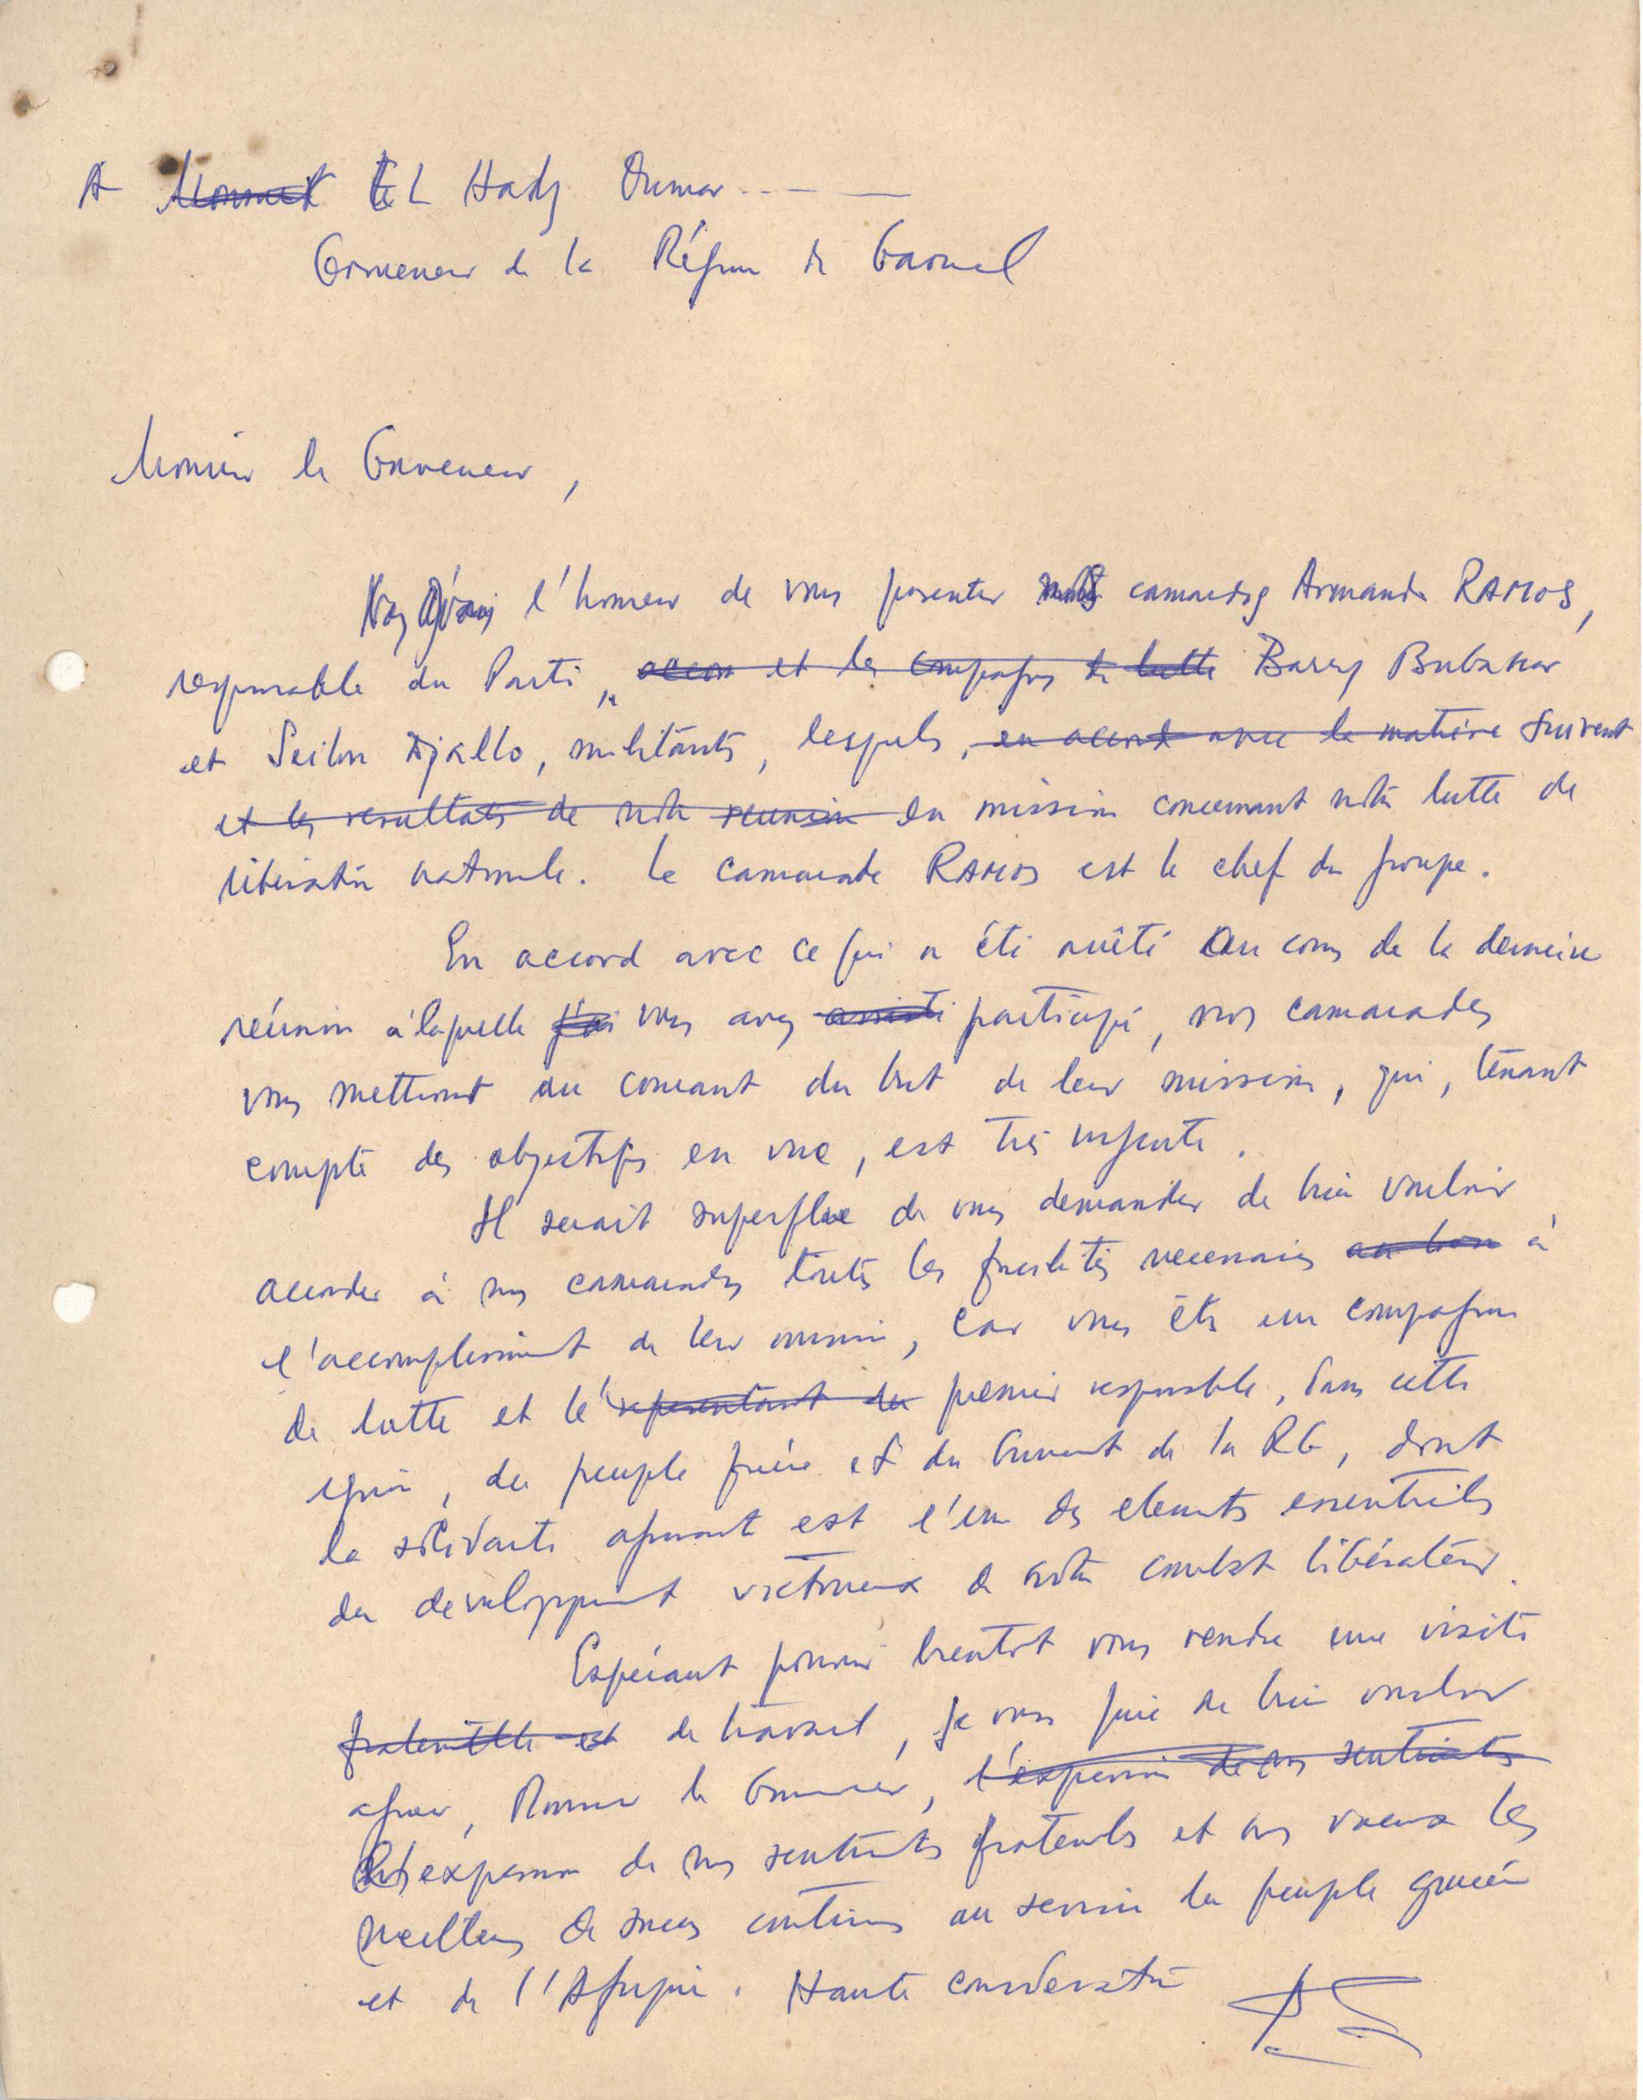 A El Hadj Oumar
Gouverneur de la Région de Gaoual
Monsieur le Gouverneur,
l'honneur de vous presenter nos camarades Armando RAMOS,
responsable du Parti, accom et les compagnons de lutte Barry Bubakar
et Seilou Djallo, militants, lesquels, en accord avec la matière suivent
et les resultats de notre reunion en mission concernant notre lutte de
libération nationale. Le camarade RAMOS est le chef du groupe.
En accord avec ce qui a été arrêté au cours de la derniére
réunion à laquelle j'ai vous avez assisté participé, nos camarades
vous mettront au courant du but de leur mission, qui, tenant
compte des objectifs en vue, est très urgente.
Il serait superflue de vous demander de bien vouloir
accorder à nos camarades toutes les facilités necessaires au bon à
l'accomplissement de leur mission, car vous êtes un compagnon
de lutte et le representant du premier responsable, dans cette
region, du peuple frère et du Gouvernement de la RG, dont
la solidarité agissante est l'un des elements essentiels
du developpement victorieux de notre combat libérateur.
Espérant pouvoir bientôt vous rendre une visite
fraternelle et de travail, je vous prie de bien vouloir
agréer, Monsieur le Gouverneur, l'expression de nos sentiments
expression de nos sentiments fraternels et nos voeux les
meilleurs de succès continus au service du peuple guinéen
et de l'Afrique. Haute consideration